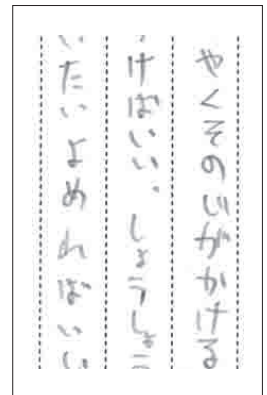 やくそのじがかける
けばいい。しょうしょう
いたいよめればいい